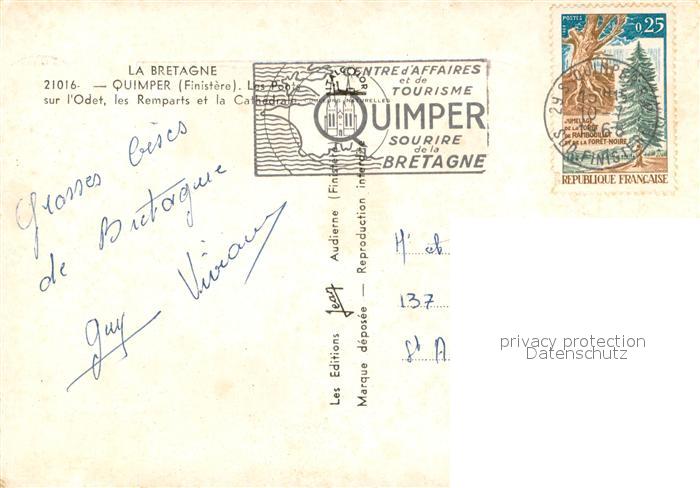 LA BRETAGNE
21016- — QUIMPER (Finistère). Les Ponts
sur l'Odet, les Remparts et la Cathédrale
CENTRE d'AFFAIRES
et de
TOURISME
QUIMPER
SOURIRE
de la
BRETAGNE
POSTES
0,25
JUMELAGE
DE LA FORÊT
DE RAMBOUILLET
ET DE LA FORÊT-NOIRE
REPUBLIQUE FRANÇAISE
29 S QUIMPER
SUD-FINISTERE
Grosses bises
de Bretagne
Guy Viviane
Les Editions Jean Audierne (Finistère)
Marque déposée — Reproduction interdite
M' et
137
St A
privacy protection
Datenschutz